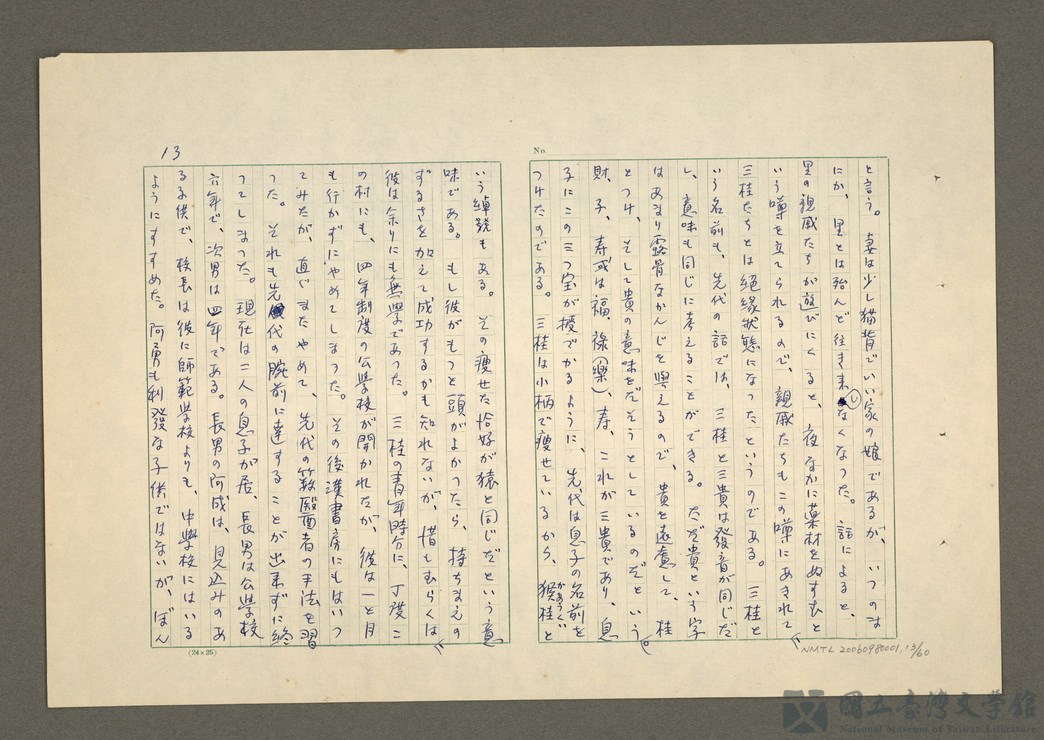 と言う。妻は少し猫背でいい家の娘であるが、いつのま
にか、里とは殆んど往き来しなくなった。話によると、
里の親戚たちが遊びにくると、夜なかに薬材をぬすむと
いう噂を立てられるので、親戚たちもこの噂にあきれて
三桂たちとは絶縁状態になったというのである。三桂と
いう名前も、先代の話では、三桂と三貴は發音が同じだ
し、意味も同じに考えることができる。ただ貴という字
はあまり露骨なかんじを與えるので、貴を遠慮して、桂
とつけ、そして貴の意味をだそうとしているのだという。
財、子、寿或は福、禄(樂)、寿、これが三貴であり、息
子にこの三つ宝が授でかるように、先代は息子の名前を
つけたのである。三桂は小柄で痩せているから、猴桂と
かあうくい
いう綽號もある。その痩せた恰好が猿と同じだという意
味である。もし彼がもっと頭がよかったら、持ちまえの
ずるさを加えて成功するかも知れないが、惜しむらくは
彼は余りにも無學であった。三桂の青年時分に、丁度こ
の村にも、四年制度の公學校が開かれたが、彼は一と月
も行かずにやめてしまった。その後漢書房にもはいっ
てみたが、直ぐまたやめて、先代の籔醫者の手法を習
った。それも先代の腕前に達することが出来ずに終
ってしまった。現在は二人の息子が居、長男は公學校
六年で、次男は四年である。長男の阿成は、見込みのあ
る子供で、校長は彼に師範學校よりも、中學校にはいる
ようにすすめた。阿勇も利發な子供ではないが、ぼん
13
No.
(24×25)
NMTL 20060980001, 13/60
國立臺灣文学館
National Museum of Taiwan Literature